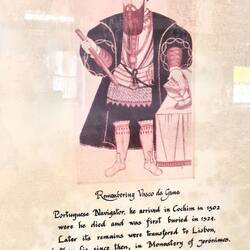 Remembering Vasco da Gama
Portuguese Navigator, he arrived in Cochim in 1502
were he died and was first buried in 1524.
Later its remains were transfered to Lisbon,
since then, in Monastery of Jerónimos.